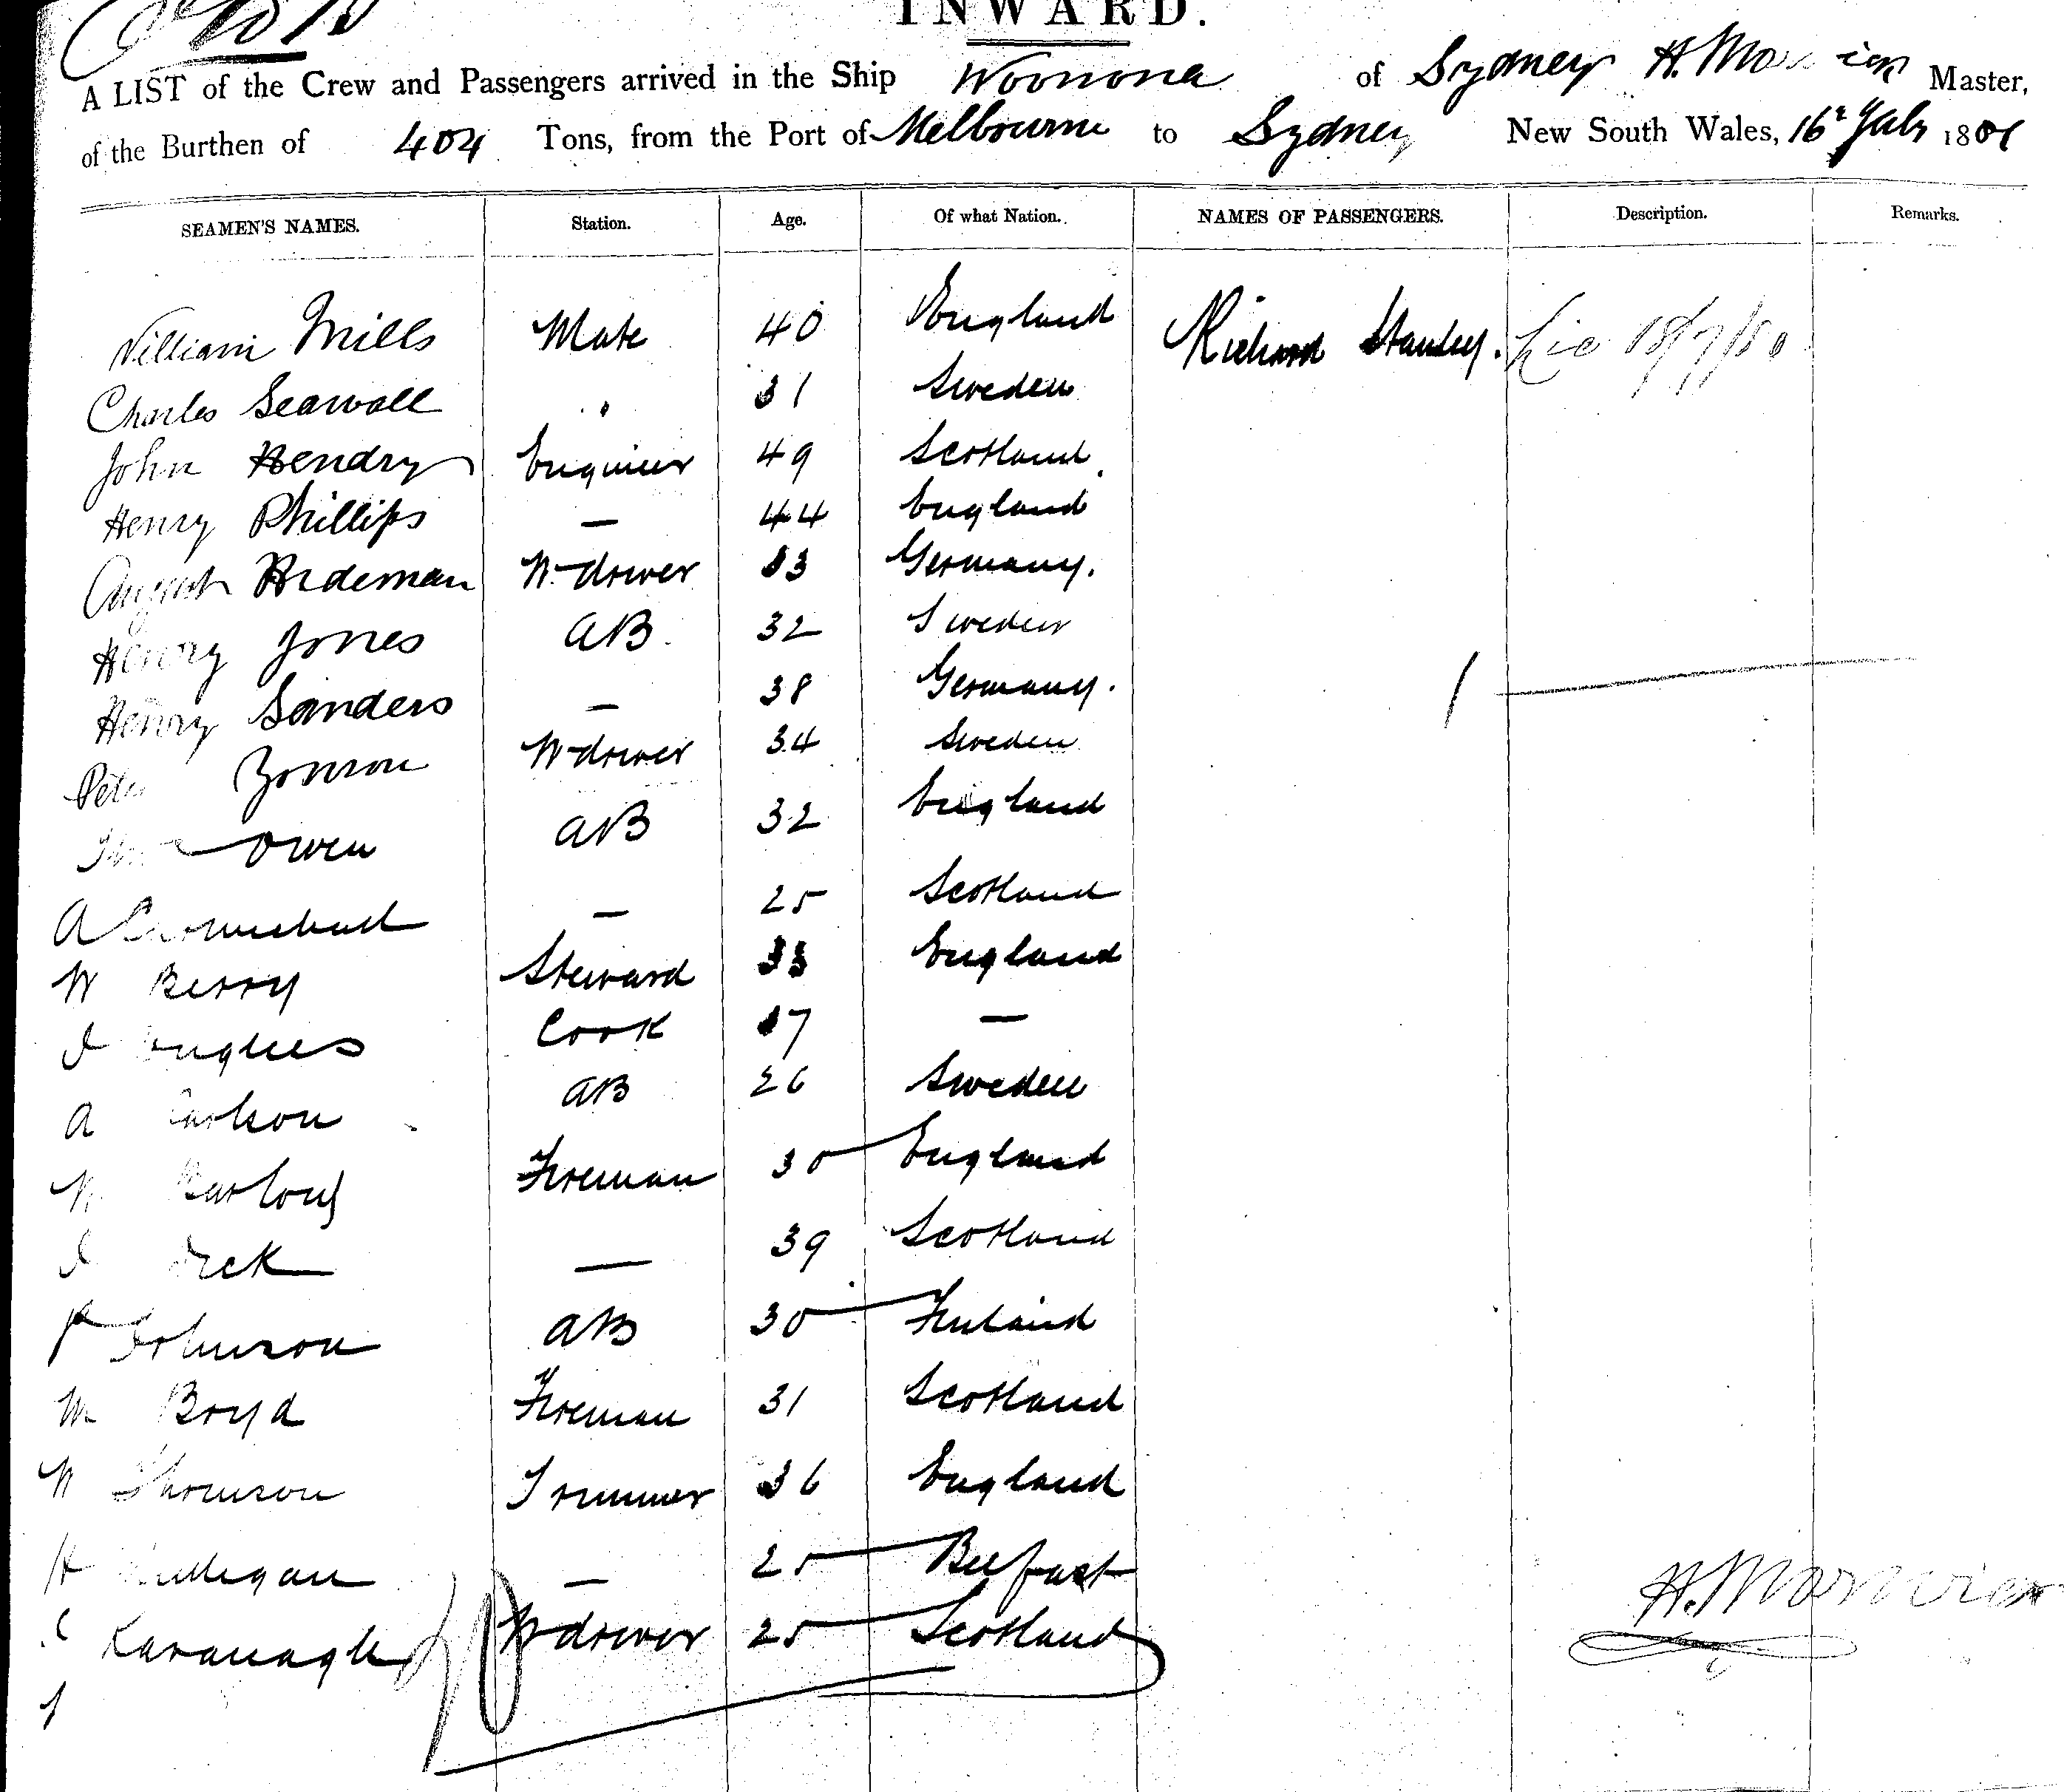 INWARD.
A LIST of the Crew and Passengers arrived in the Ship Woonona of Sydney H. Master,
of the Burthen of 404 Tons, from the Port of Melbourne to Sydney New South Wales, 16th July 18
SEAMEN'S NAMES. Station. Age. Of what Nation. NAMES OF PASSENGERS. Description. Remarks.
William Mills Mate 40 England Richard Stanley.
Charles Seawall " 31 Sweden
John Hendry Engineer 49 Scotland
Henry Phillips — 44 England
August W. drower 33 Germany.
Henry Jones AB 32 Sweden
Henry Sanders — 38 Germany. 1
Peter W drower 34 Sweden
Owen AB 32 England
A — 25 Scotland
W Berry Steward 33 England
J Hughes Cook —
A Carlson AB 26 Sweden
W Fireman 30 England
J Dick — 39 Scotland
P Johnson AB 30 Finland
M Boyd Fireman 31 Scotland
W Thomson Trimmer 36 England
H — 25 Belfast
Kavanagh W drower 25 Scotland